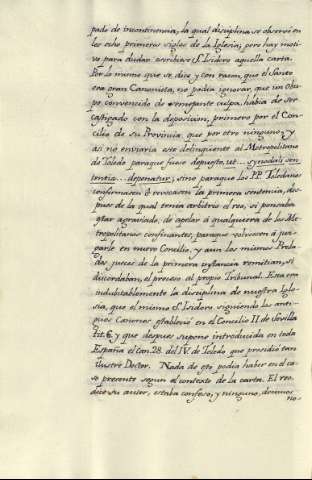 pado de incontinencia, la qual disciplina se observó en
los ocho primeros siglos de la Iglesia; pero hay moti-
vo para dudar escribiese S. Isidoro aquella carta.
Por lo mismo que se dice y con razon, que el Santo
era gran Canonista, no podia ignorar, que un Obis-
po convencido de semejante culpa, habia de ser
castigado con la deposicion, primero por el Con-
cilio de su Provincia que por otro ninguno, y
asi no enviaria este delinqüente al Metropolitano
de Toledo paraque fuese depuesto, ut.... synodali sen-
tentia... deponatur, sino paraque los PP. Toledanos
confirmasen ó revocasen la primera sentencia, des-
pues de la qual tenia arbitrio el reo, si pensaba
estar agraviado, de apelar á qualquiera de los Me-
tropolitanos confinantes, paraque volviesen á juz-
garle en nuevo Concilio, y aun los mismos Prela-
dos jueces de la primera instancia remitian, si
discordaban, el proceso al propio Tribunal. Esta era
indubitablemente la disciplina de nuestra Igle-
sia, que el mismo S. Isidoro siguiendo los anti-
guos Canones estableció en el Concilio II. de Sevilla
tit. 6. y que despues supone introducida en toda
España el Can. 28. del IV. de Toledo que presidió tan
ilustre Doctor. Nada de esto podia haber en el ca-
so presente segun el contexto de la carta. El reo,
dice su autor, estaba confeso; y ninguno, decimos
no-